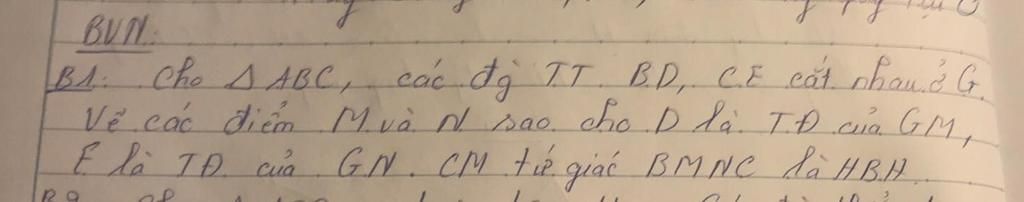 BVN:
B1: Cho Δ ABC, các đg TT BD, CE cắt nhau ở G.
Vẽ các điểm M và N sao cho D là TĐ của GM,
E là TĐ của GN. CM tứ giác BMNC là HBH